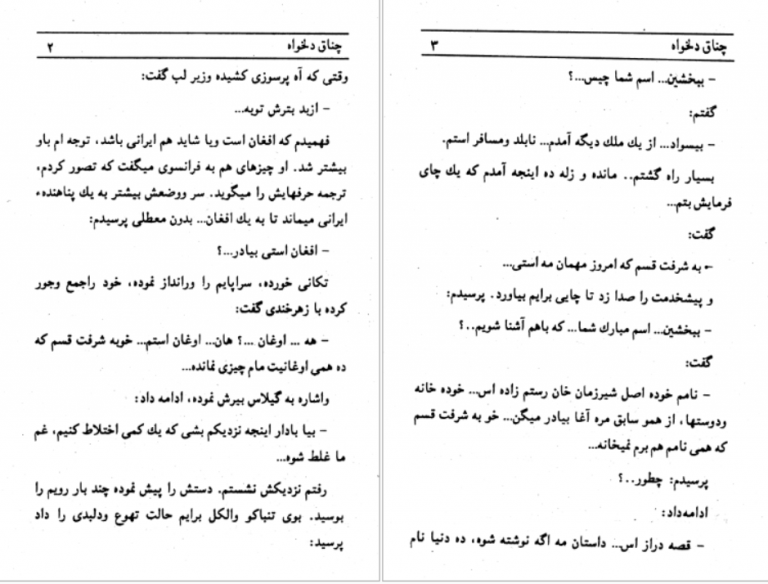 چناق دلخواه ۲
وقتی که آه پرسوزی کشیده وزیر لب گفت:
- ازبد بترش توبه...
فهمیدم که افغان است ویا شاید هم ایرانی باشد، توجه ام باو
بیشتر شد. او چیزهای هم به فرانسوی میگفت که تصور کردم،
ترجمه حرفهایش را میگوید. سر ووضعش بیشتر به یك پناهندهء
ایرانی میماند تا به یك افغان... بدون معطلی پرسیدم:
- افغان استی بیادر...؟
تکانی خورده، سراپایم را ورانداز نموده، خود راجمع وجور
کرده با زهرخندی گفت:
- هه ... اوغان ...؟ هان... اوغان استم... خوبه شرفت قسم که
ده همی اوغانیت مام چیزی نمانده...
واشاره به گیلاس بیرش نموده، ادامه داد:
- بیا بادار اینجه نزدیکم بشی که یك کمی اختلاط کنیم، غم
ما غلط شوه...
رفتم نزدیکش نشستم. دستش را پیش نموده چند بار رویم را
بوسید. بوی تنباکو والکل برایم حالت تهوع ودلبدی را داد
پرسید:
چناق دلخواه ۳
- ببخشین... اسم شما چیس...؟
گفتم:
- بیسواد... از یك ملك دیگه آمدم... نابلد ومسافر استم.
بسیار راه گشتم.. مانده و زله ده اینجه آمدم که یك چای
فرمایش بتم...
گفت:
- به شرفت قسم که امروز مهمان مه استی...
و پیشخدمت را صدا زد تا چایی برایم بیاورد. پرسیدم:
- ببخشین... اسم مبارك شما... که باهم آشنا شویم..؟
گفت:
- نامم خوده اصل شیرزمان خان رستم زاده اس... خوده خانه
ودوستها، از همو سابق مره آغا بیادر میگن... خو به شرفت قسم
که همی نامم هم برم نمیخانه...
پرسیدم: چطور..؟
ادامه‌داد:
- قصه دراز اس... داستان مه اگه نوشته شوه، ده دنیا نام